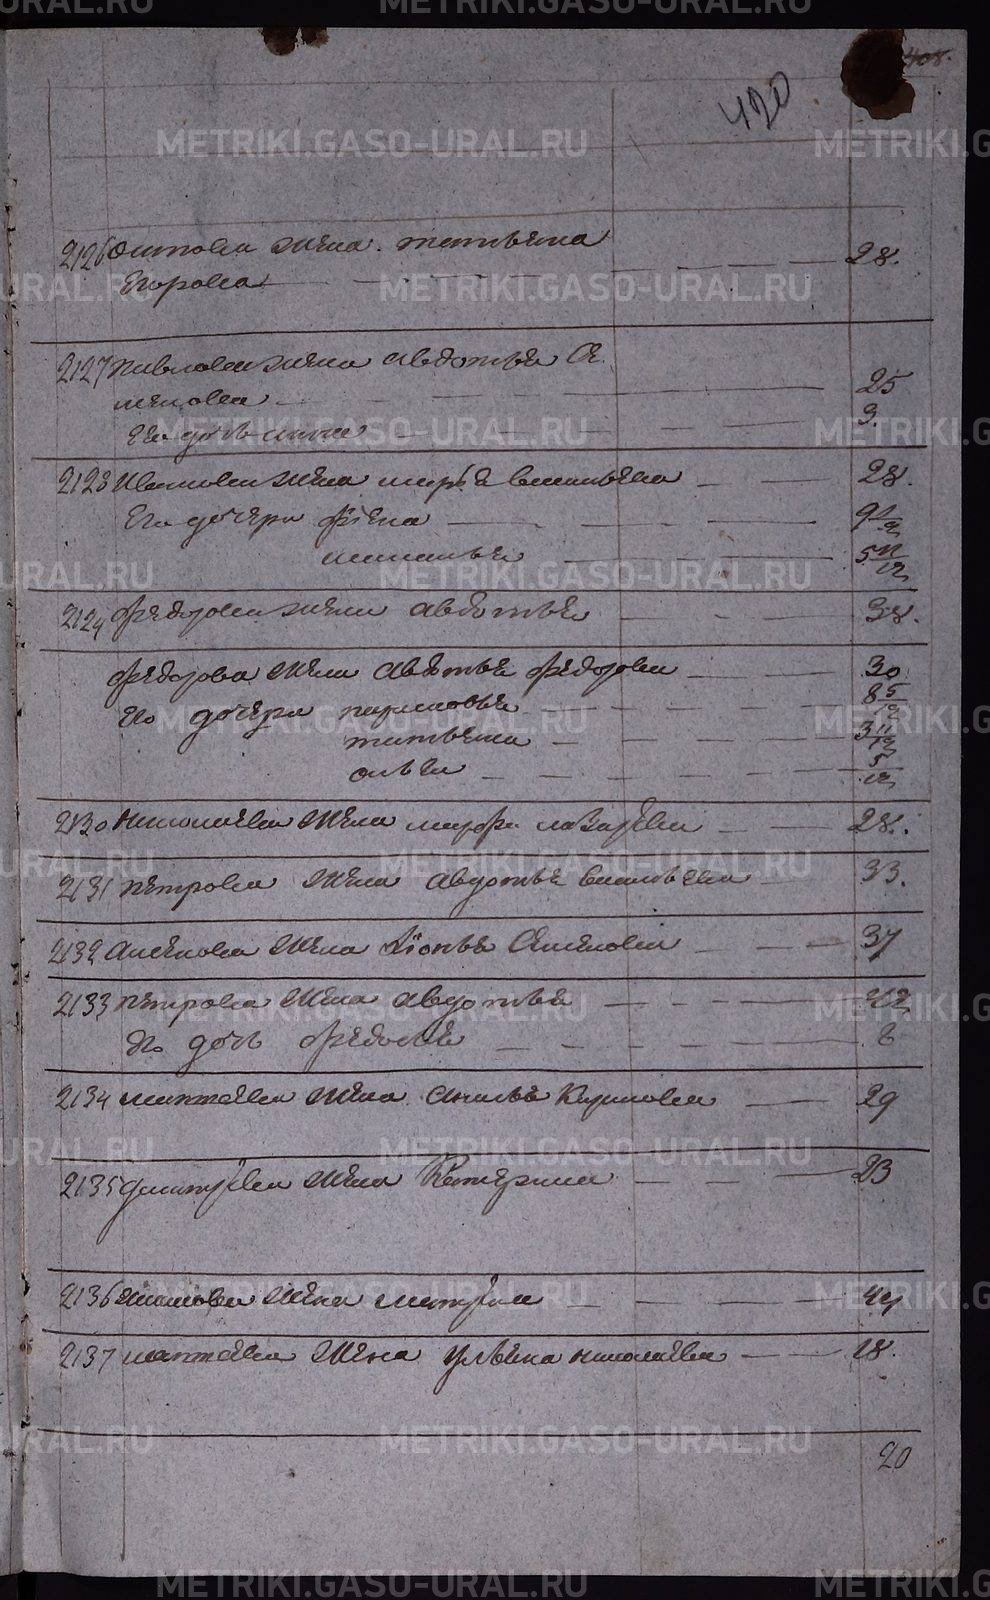 408.
420
2126 Осипова жена Татьяна 28.
Егорова
2127 Павлова жена Авдотья Се
менова 25
Его дочь Анна 3.
2128 Иванова жена Марья Васильева 28.
Его дочери Фёкла 9
Маланья 5 11/12
2129 Федорова жена Авдотья 38.
Федорова жена Авдотья Федорова 30
Его дочери Парасковья 8 5/12
Татьяна 3 11/12
5/12
2130 Николаева жена Марфа Лазарева 28.
2131 Петрова жена Авдотья Васильева 33.
2132 Аксенова жена Семенова 37
2133 Петрова жена Авдотья 42
Его дочь Федосья 6
2134 Матвеева жена Анисья Карпова 29
2135 Дмитрева жена Катерина 23
2136 жена Матрена 44
2137 Матвеева жена Ульяна Николаева 18.
20
METRIKI.GASO-URAL.RU